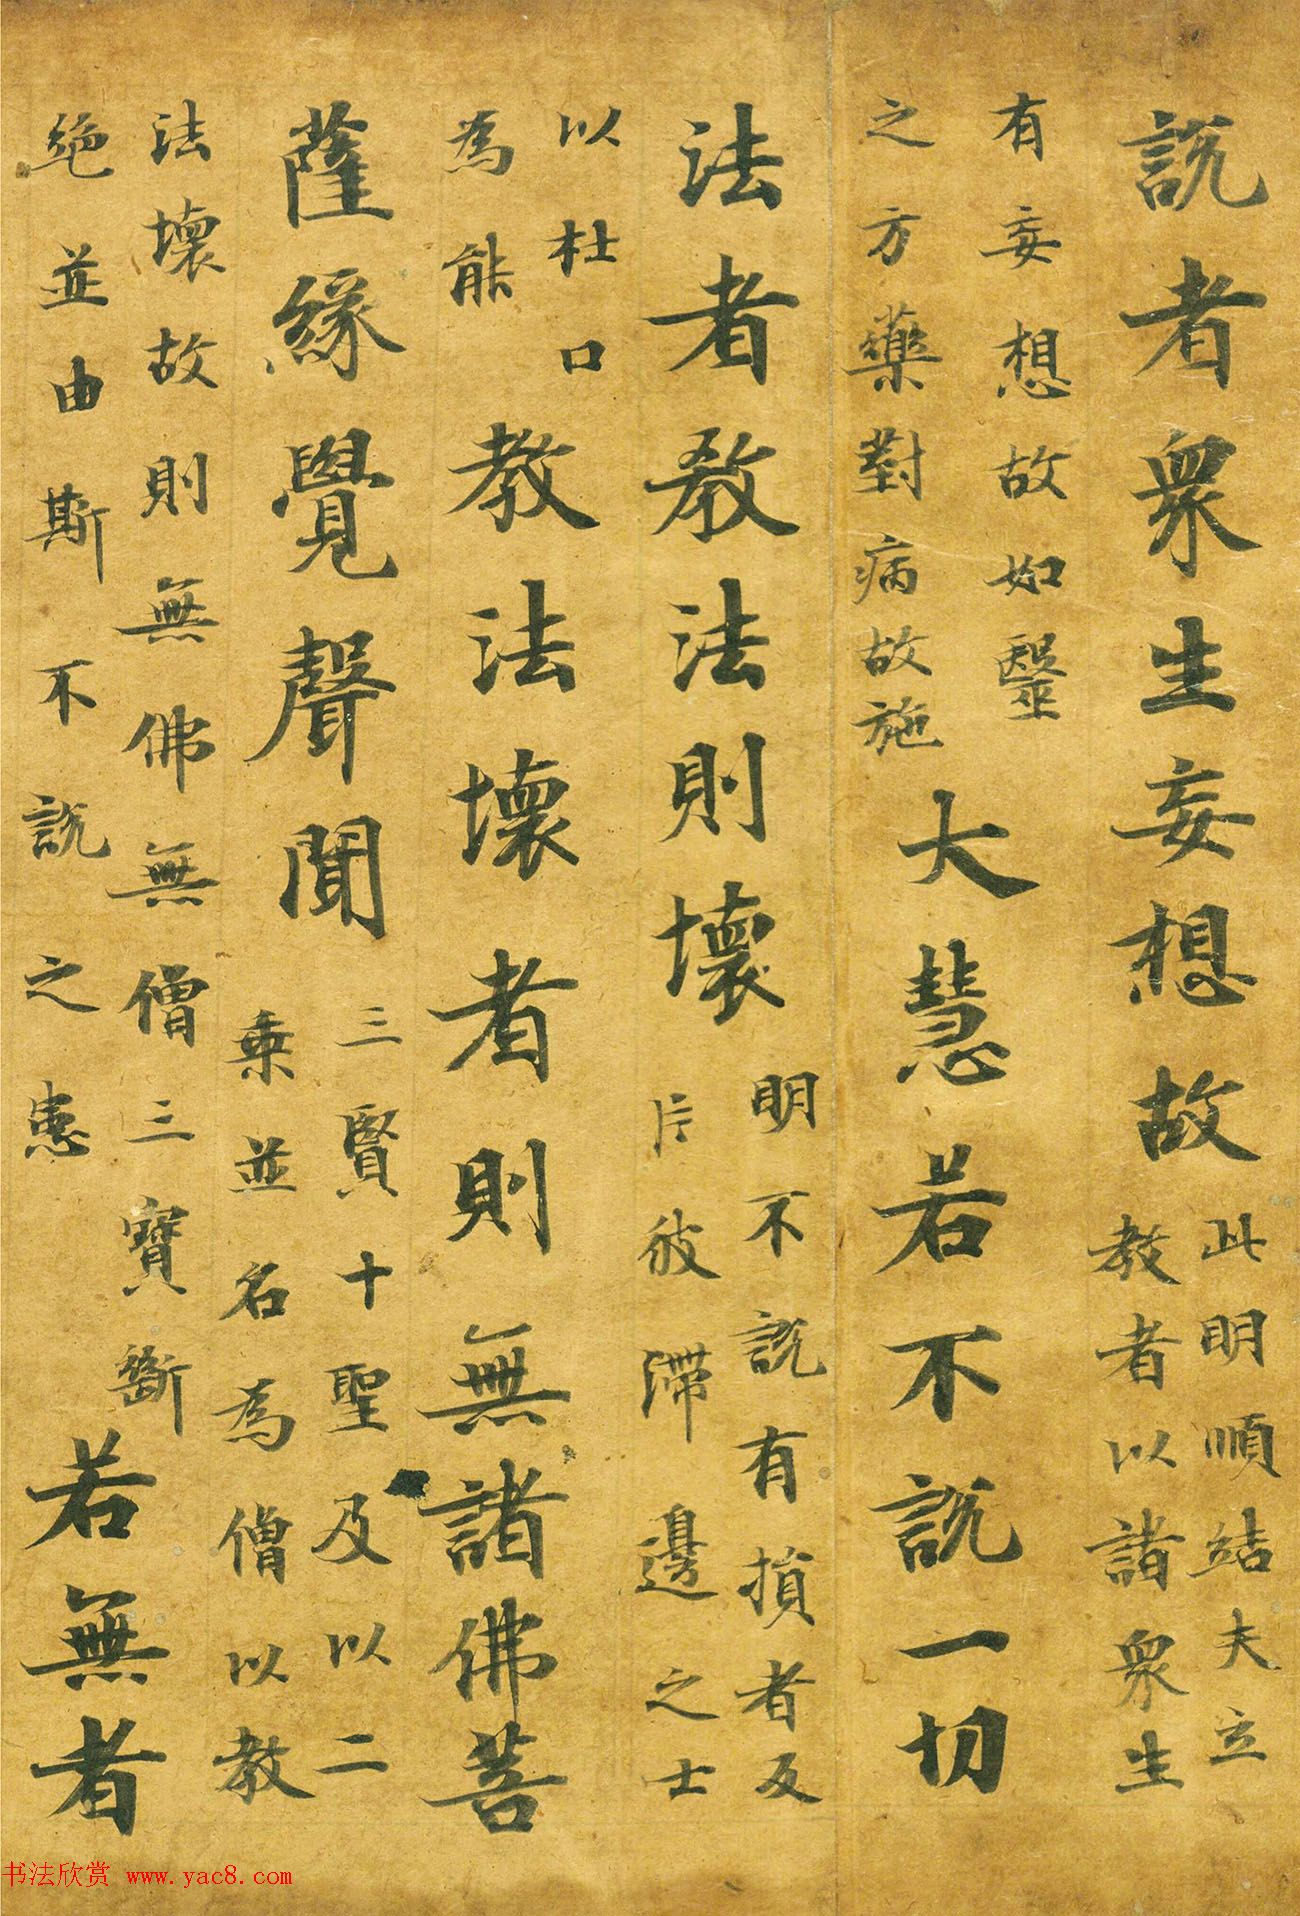 說者衆生妄想故
此明順結夫立
教者以諸衆生
有妄想故如醫
之方藥對病故施
大慧若不說一切
法者教法則壞
明不說有損者反
斥彼滯邊之士
以杜口
為能
教法壞者則無諸佛菩
薩緣覺聲聞
三賢十聖及以二
乘並名為僧以教
法壞故則無佛無僧三寶斷
絶並由斯不說之患
若無者
书法欣赏 www.yac8.com